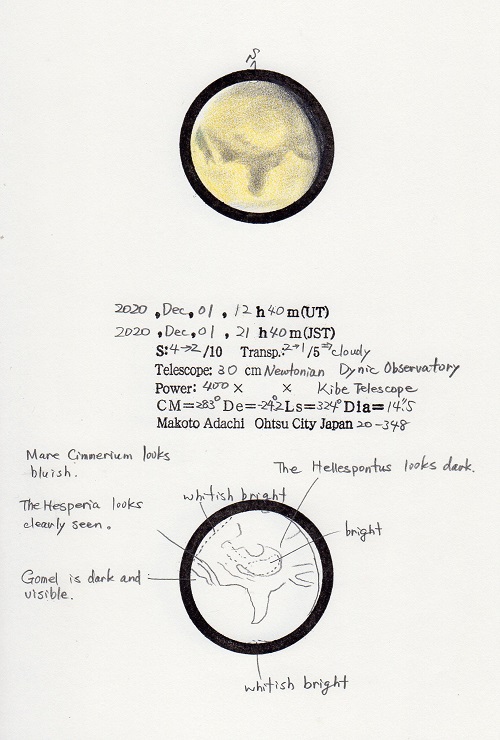 S
2020, Dec, 01, 12 h 40 m (UT)
2020, Dec, 01, 21 h 40 m (JST)
S: 4→2/10 Transp.: 2→1/5 ⇒ cloudy
Telescope: 30 cm Newtonian Dynic Observatory
Power: 400 × × Kibe Telescope
CM=283° De=-24.2 Ls=324° Dia=14".5
Makoto Adachi Ohtsu City Japan 20-348
Mare Cimmerium looks
bluish.
The Hellespontus looks dark.
whitish bright
The Hesperia looks
clearly seen.
bright
Gomel is dark and
visible.
whitish bright